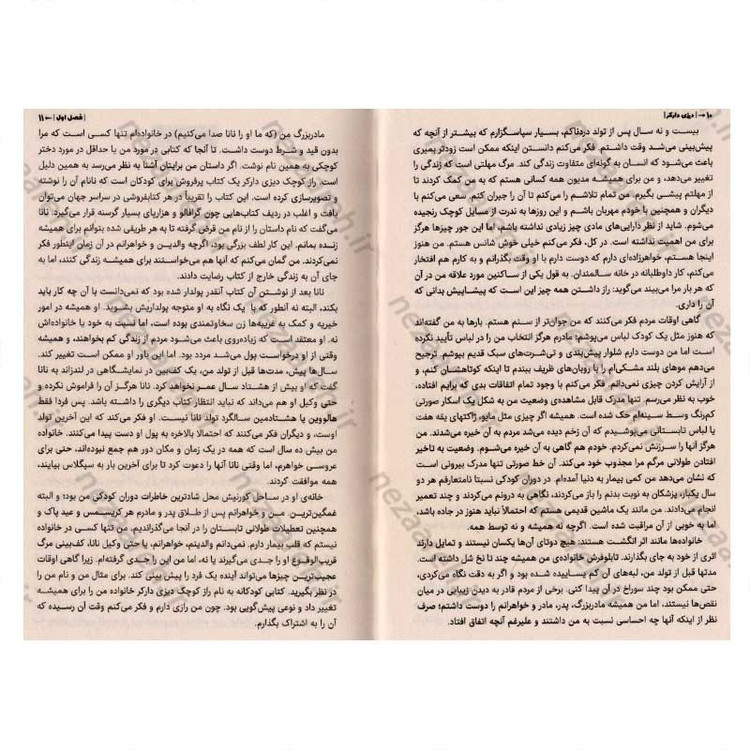 ۱۰ →| دیزی دارکر|
بیست و نه سال پس از تولد دردناکم، بسیار سپاسگزارم که بیشتر از آنچه که
پیش‌بینی می‌شد وقت داشتم. فکر می‌کنم دانستن اینکه ممکن است زودتر بمیری
باعث می‌شود که انسان به گونه‌ای متفاوت زندگی کند. مرگ مهلتی است که زندگی را
تغییر می‌دهد، و من برای همیشه مدیون همه کسانی هستم که به من کمک کردند تا
از مهلتم پیشی بگیرم. من تمام تلاشم را می‌کنم تا آن را جبران کنم. سعی می‌کنم با
دیگران و همچنین با خودم مهربان باشم و این روزها به ندرت از مسایل کوچک رنجیده
می‌شوم. شاید از نظر دارایی‌های مادی چیز زیادی نداشته باشم، اما این جور چیزها هرگز
برای من اهمیت نداشته است. در کل، فکر می‌کنم خیلی خوش شانس هستم. من هنوز
اینجا هستم، خواهرزاده‌ای دارم که دوست دارم با او وقت بگذرانم و به کارم هم افتخار
می‌کنم، کار داوطلبانه در خانه سالمندان. به قول یکی از ساکنین مورد علاقه من در آن
که هر بار مرا می‌بیند می‌گوید: راز داشتن همه چیز این است که پیشاپیش بدانی که
آن را داری.
گاهی اوقات مردم فکر می‌کنند که من جوان‌تر از سنم هستم. بارها به من گفته‌اند
که هنوز مثل یک کودک لباس می‌پوشم؛ مادرم هرگز انتخاب من را در لباس تأیید نکرده
است اما من دوست دارم شلوار پیش‌بندی و تی‌شرت‌های سبک قدیم بپوشم. ترجیح
می‌دهم موهای بلند مشکی‌ام را با روبان‌های ظریف ببندم تا اینکه کوتاهشان کنم، و
از آرایش کردن چیزی نمی‌دانم. فکر می‌کنم با وجود تمام اتفاقات بدی که برایم افتاده،
خوب به نظر می‌رسم. تنها مدرک قابل مشاهده‌ی وضعیت من به شکل یک اسکار صورتی
کم‌رنگ وسط سینه‌ام حک شده است. همیشه اگر چیزی مثل مایو، ژاکتهای یقه هفت
یا لباس تابستانی می‌پوشیدم که آن زخم دیده می‌شد مردم به آن خیره می‌شدند. من
هرگز آنها را سرزنش نمی‌کردم. خودم هم گاهی به آن خیره می‌شوم. وضعیت به تاخیر
افتادن طولانی مرگم مرا مجذوب خود می‌کند. آن خط صورتی تنها مدرک بیرونی است
که نشان می‌دهد من کمی بیمار به دنیا آمده‌ام. در دوران کودکی نسبتا نامتعارفم هر دو
سال یکبار، پزشکان به نوبت بدنم را باز می‌کردند، نگاهی به درونم می‌کردند و چند تعمیر
انجام می‌دادند. من مانند یک ماشین قدیمی هستم که احتمالاً نباید هنوز در جاده باشد،
اما به خوبی از آن مراقبت شده است. اگرچه نه همیشه و نه توسط همه.
خانواده‌ها مانند اثر انگشت هستند: هیچ دوتای آن‌ها یکسان نیستند و تمایل دارند
اثری از خود به جای بگذارند. تابلوفرش خانواده‌ی من همیشه چند تا نخ شل داشته است.
مدتها قبل از تولد من، لبه‌های آن کم ساییده شده بود و اگر به دقت نگاه می‌کردی،
حتی ممکن بود چند سوراخ در آن پیدا کنی. برخی از مردم قادر به دیدن زیبایی در میان
نقص‌ها نیستند، اما من همیشه مادربزرگ، پدر، مادر و خواهرانم را دوست داشتم؛ صرف
نظر از اینکه آنها چه احساسی نسبت به من داشتند و علیرغم آنچه اتفاق افتاد.
|فصل اول| ← ۱۱
مادربزرگ من (که ما او را نانا صدا می‌کنیم) در خانواده‌ام تنها کسی است که مرا
بدون قید و شرط دوست داشت. تا آنجا که کتابی در مورد من یا حداقل در مورد دختر
کوچکی به همین نام نوشت. اگر داستان من برایتان آشنا به نظر می‌رسد به همین دلیل
است. راز کوچک دیزی دارکر یک کتاب پرفروش برای کودکان است که نانام آن را نوشته
و تصویرسازی کرده است. این کتاب را تقریباً در هر کتابفروشی در سراسر جهان می‌توان
یافت و اغلب در ردیف کتاب‌هایی چون گرافالو و هزارپای بسیار گرسنه قرار می‌گیرد. نانا
می‌گفت که نام داستان را از نام من قرض گرفته تا به هر طریقی شده بتوانم برای همیشه
زنده بمانم. این کار لطف بزرگی بود، اگرچه والدین و خواهرانم در آن زمان اینطور فکر
نمی‌کردند. من گمان می‌کنم که آنها هم می‌خواستند برای همیشه زندگی کنند، اما به
جای آن به زندگی خارج از کتاب رضایت دادند.
نانا بعد از نوشتن آن کتاب آنقدر پولدار شده بود که نمی‌دانست با آن چه کار باید
بکند، البته نه آنطور که با یک نگاه به او متوجه پولدارایش بشوید. او همیشه در امور
خیریه و کمک به غریبه‌ها زن سخاوتمندی بوده است، اما نسبت به خود یا خانواده‌اش
نه. او معتقد است که زیاده‌روی باعث می‌شود مردم از زندگی کم بخواهند، و همیشه
وقتی از او درخواست پول می‌شد مردد بود. اما این باور او ممکن است تغییر کند.
سال‌ها پیش، مدت‌ها قبل از تولد من، یک کف‌بین در نمایشگاهی در لندزاند به نانا
گفت که او بیش از هشتاد سال عمر نخواهد کرد. نانا هرگز آن را فراموش نکرده و
حتی وکیل او هم می‌داند که نباید انتظار کتاب دیگری را داشته باشد. پس فردا فقط
هالووین یا هشتادمین سالگرد تولد نانا نیست. او فکر می‌کند که این آخرین تولد
اوست، و دیگران فکر می‌کنند که احتمالا بالاخره به پول او دست پیدا می‌کنند. خانواده
من بیش از ده سال است که همه در یک زمان و مکان دور هم جمع نبوده‌اند، حتی برای
عروسی خواهرم، اما وقتی نانا آنها را دعوت کرد تا برای آخرین بار به سیگلاس بیایند،
همه موافقت کردند.
خانه‌ی او در ساحل کورنیش محل شادترین خاطرات دوران کودکی من بود؛ و البته
غمگین‌ترین. من و خواهرانم پس از طلاق پدر و مادرم هر کریسمس و عید پاک و
همچنین تعطیلات طولانی تابستان را در آنجا می‌گذراندیم. من تنها کسی در خانواده
نیستم که قلب بیمار دارم. نمی‌دانم والدینم، خواهرانم، یا حتی وکیل نانا، کف‌بینی مرگ
قریب‌الوقوع او را جدی می‌گیرند یا نه، اما من این را جدی گرفته‌ام. زیرا گاهی اوقات
عجیب‌ترین چیزها می‌تواند آینده یک فرد را پیش بینی کند. برای مثال من و نام من را
در نظر بگیرید. کتابی کودکانه به نام راز کوچک دیزی دارکر خانواده من را برای همیشه
تغییر داد و نوعی پیش‌گویی بود. چون من رازی دارم و فکر می‌کنم وقت آن رسیده که
آن را به اشتراک بگذارم.